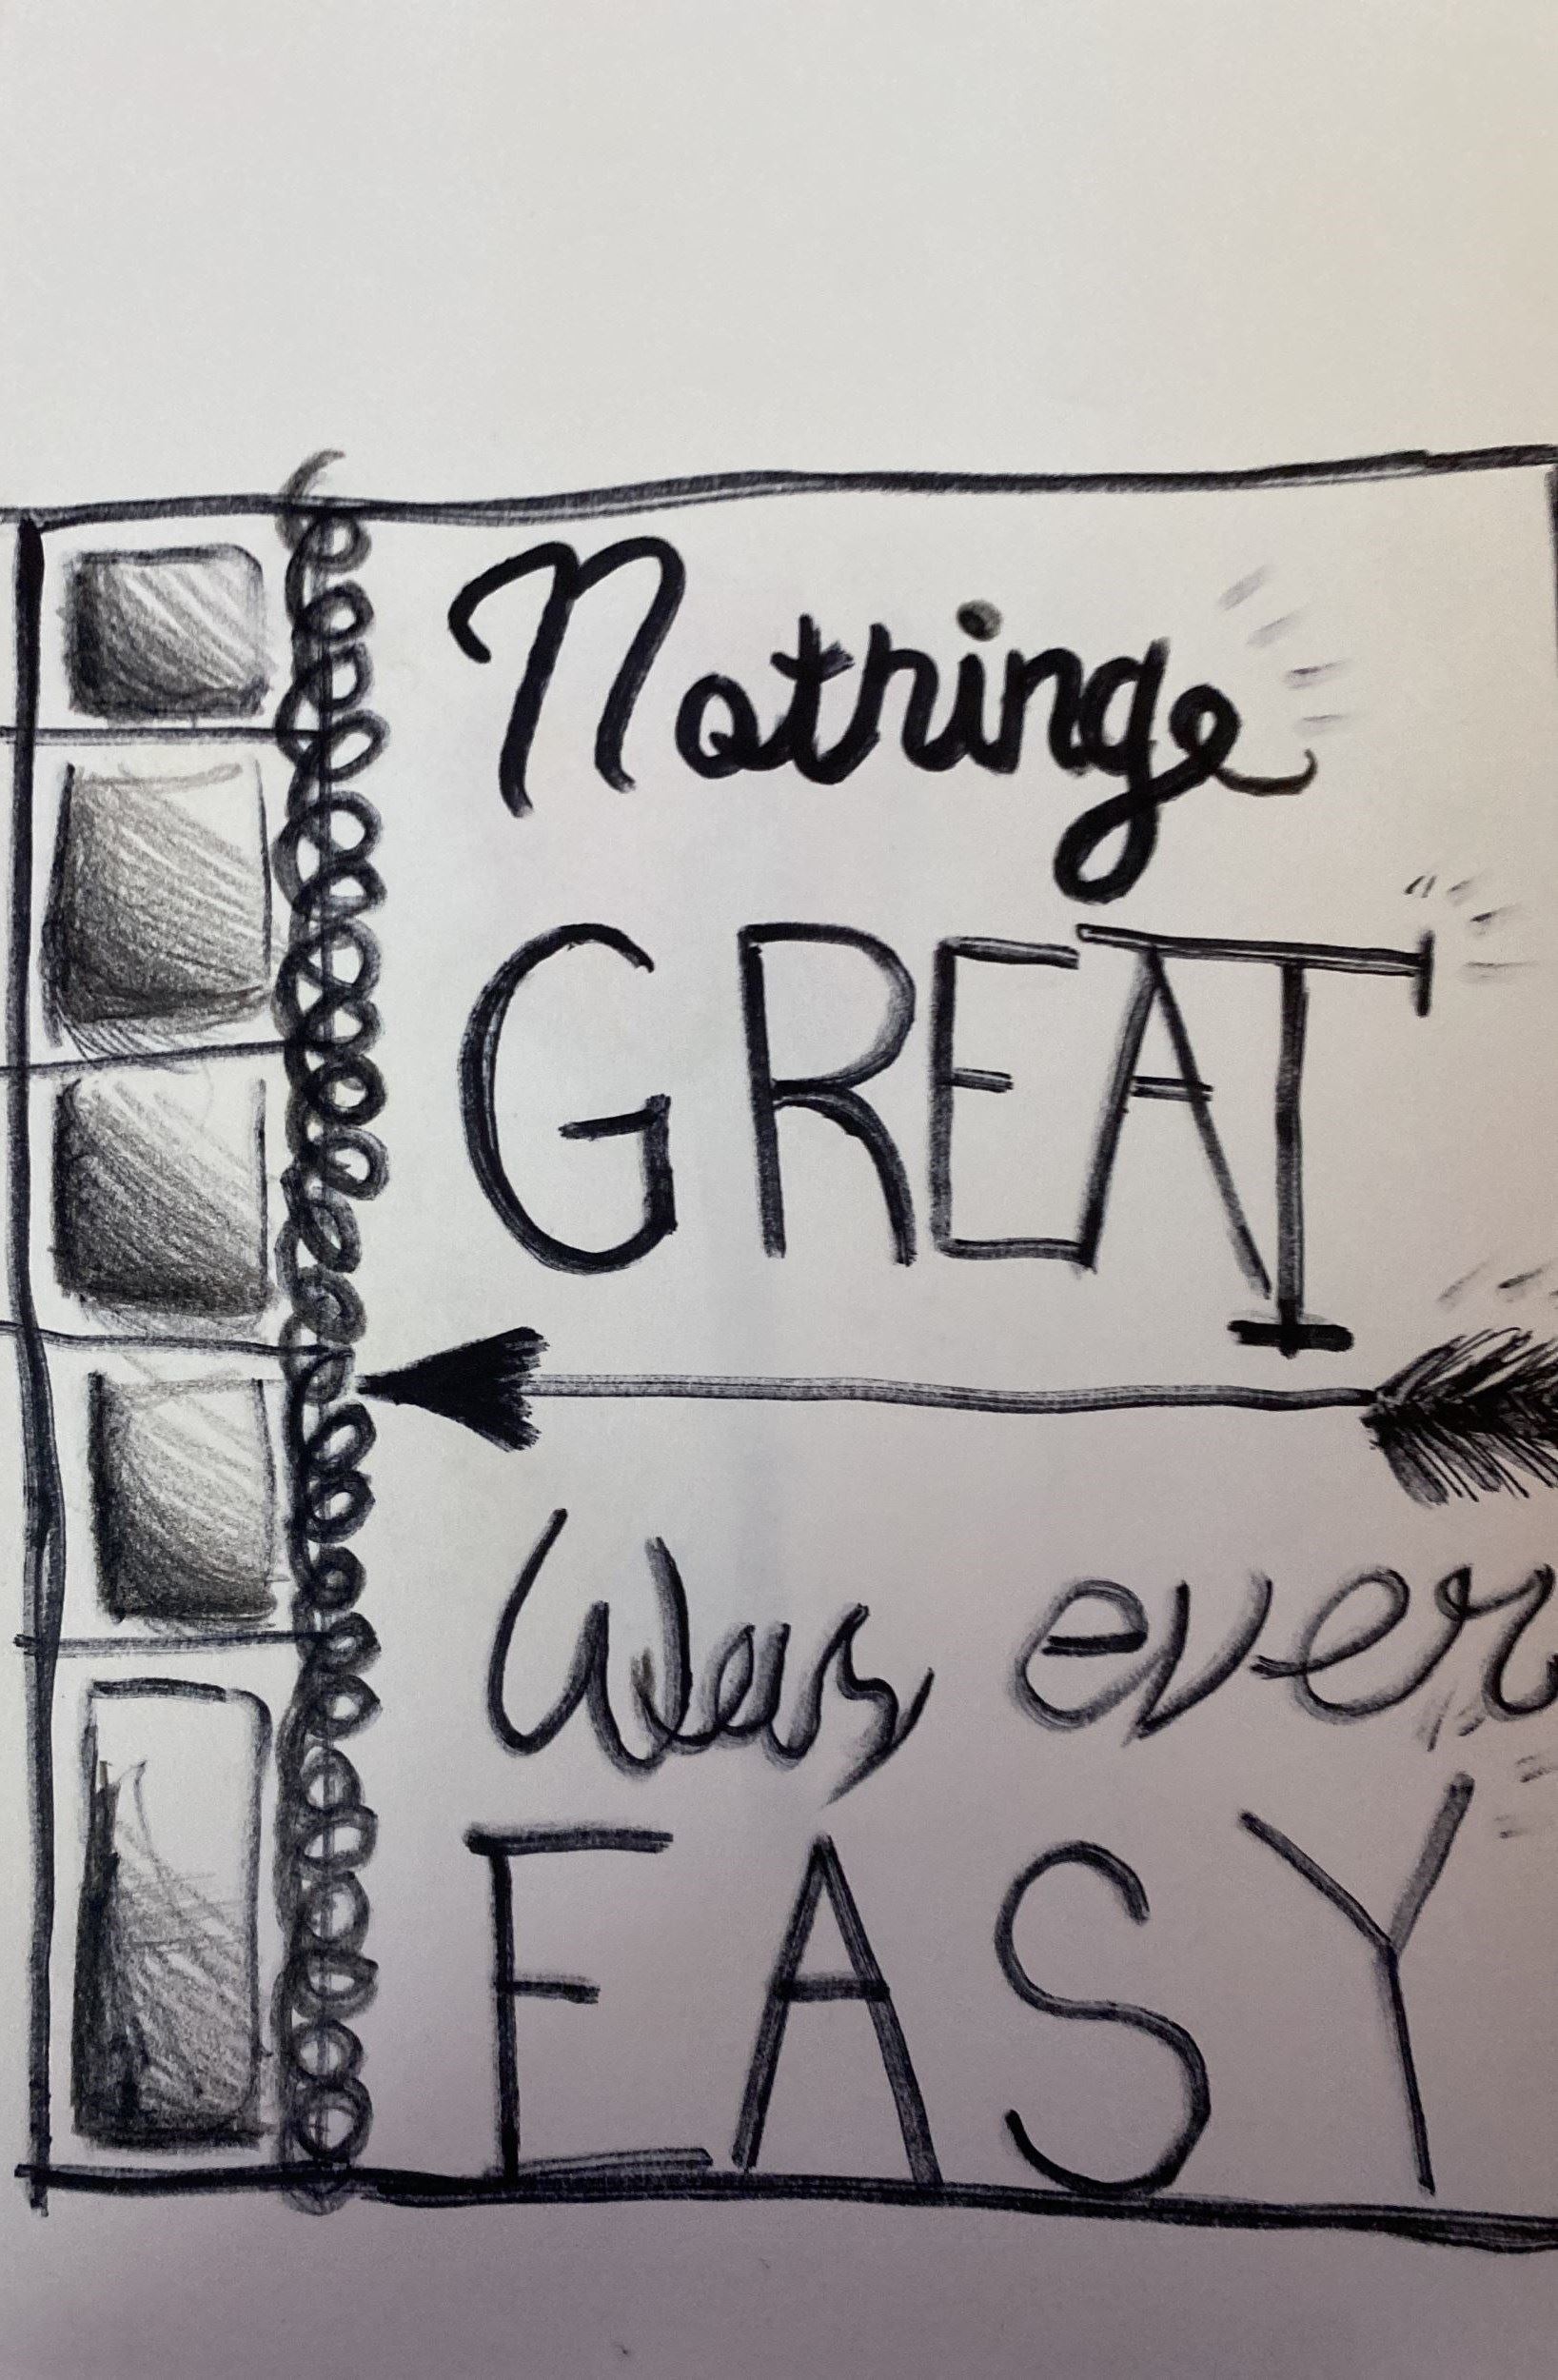 Nothing
GREAT
Was ever
EASY